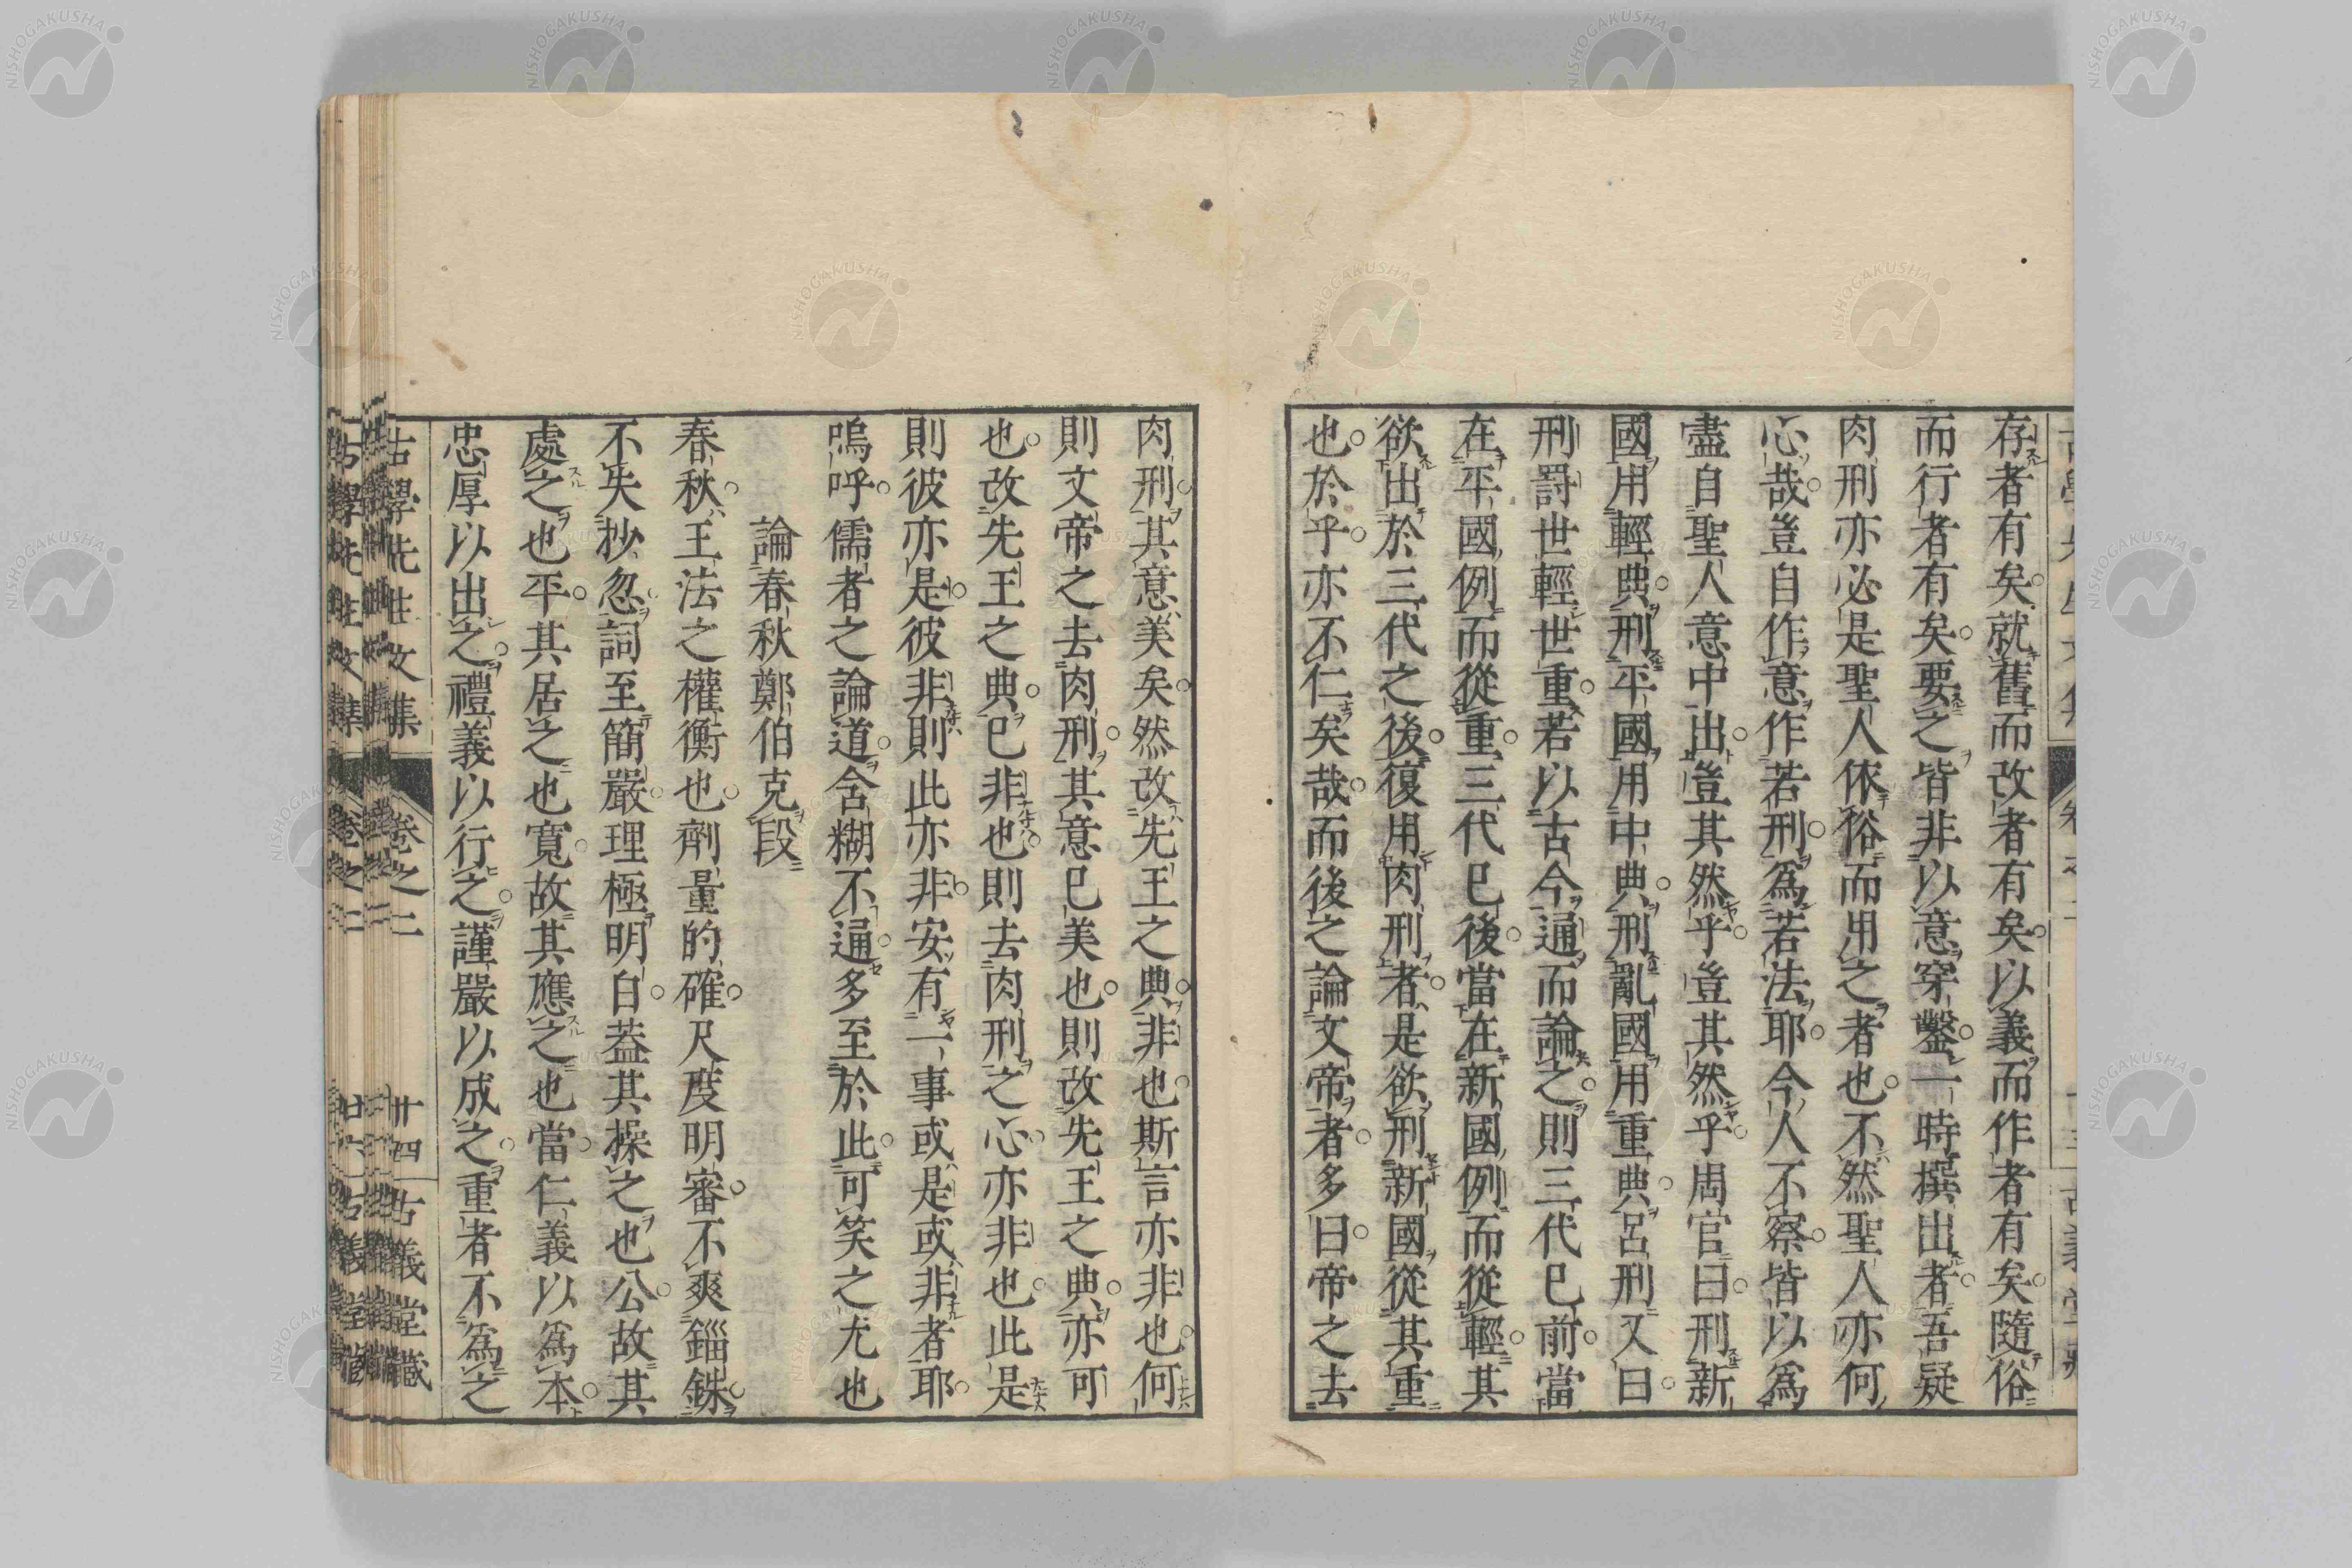 存者有矣就舊而改者有矣以義而作者有矣隨俗
而行者有矣要之皆非以意穿鑿一時撰出者吾疑
肉刑亦必是聖人依俗而用之者也不然聖人亦何
心哉豈自作意作若刑為若法耶今人不察皆以為
盡自聖人意中出豈其然乎豈其然乎周官曰刑新
國用輕典刑平國用中典刑亂國用重典呂刑又曰
刑罰世輕世重若以古今通而論之則三代已前當
在平國例而從重三代已後當在新國例而從輕其
欲出於三代之後復用肉刑者是欲刑新國從其重
也於乎亦不仁矣哉而後之論文帝者多曰帝之去
肉刑其意美矣然改先王之典非也斯言亦非也何
則文帝之去肉刑其意已美也則改先王之典亦可
也改先王之典已非也則去肉刑之心亦非也此是
則彼亦是彼非則此亦非安有一事或是或非者耶
嗚呼儒者之論道含糊不通多至於此可笑之尤也
論春秋鄭伯克段
春秋王法之權衡也劑量的確尺度明審不爽錙銖
不失抄忽詞至簡嚴理極明白蓋其操之也公故其
處之也平其居之也寬故其應之也當仁義以為本
忠厚以出之禮義以行之謹嚴以成之重者不為之
古學先生文集 卷之二 廿四 古義堂藏
NISHOGAKUSHA